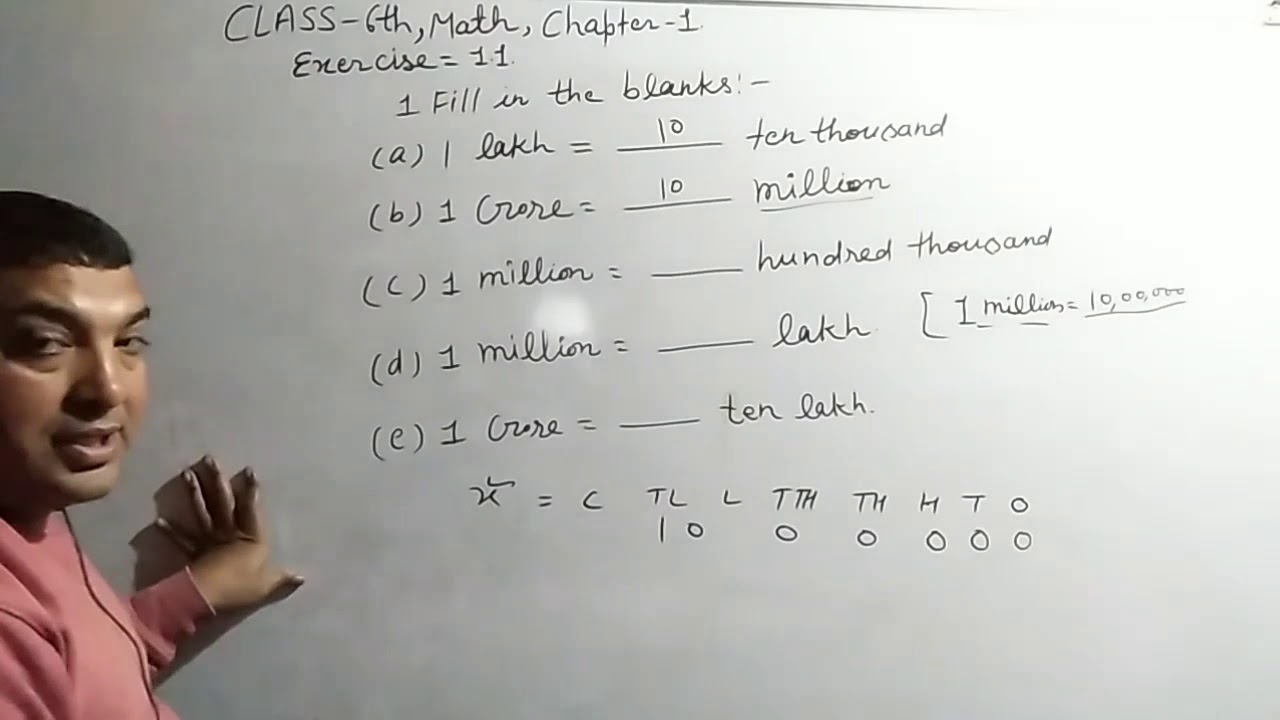 CLASS-6th, Math, Chapter-1.
Exercise = 1.1.
1 Fill in the blanks:-
(a) 1 lakh = 10 ten thousand
(b) 1 Crore = 10 million
(c) 1 million = ____ hundred thousand
(d) 1 million = ____ lakh [ 1 million = 10,00,000
(e) 1 Crore = ____ ten lakh.
= C TL L TTH TH H T O
1 0 0 0 0 0 0